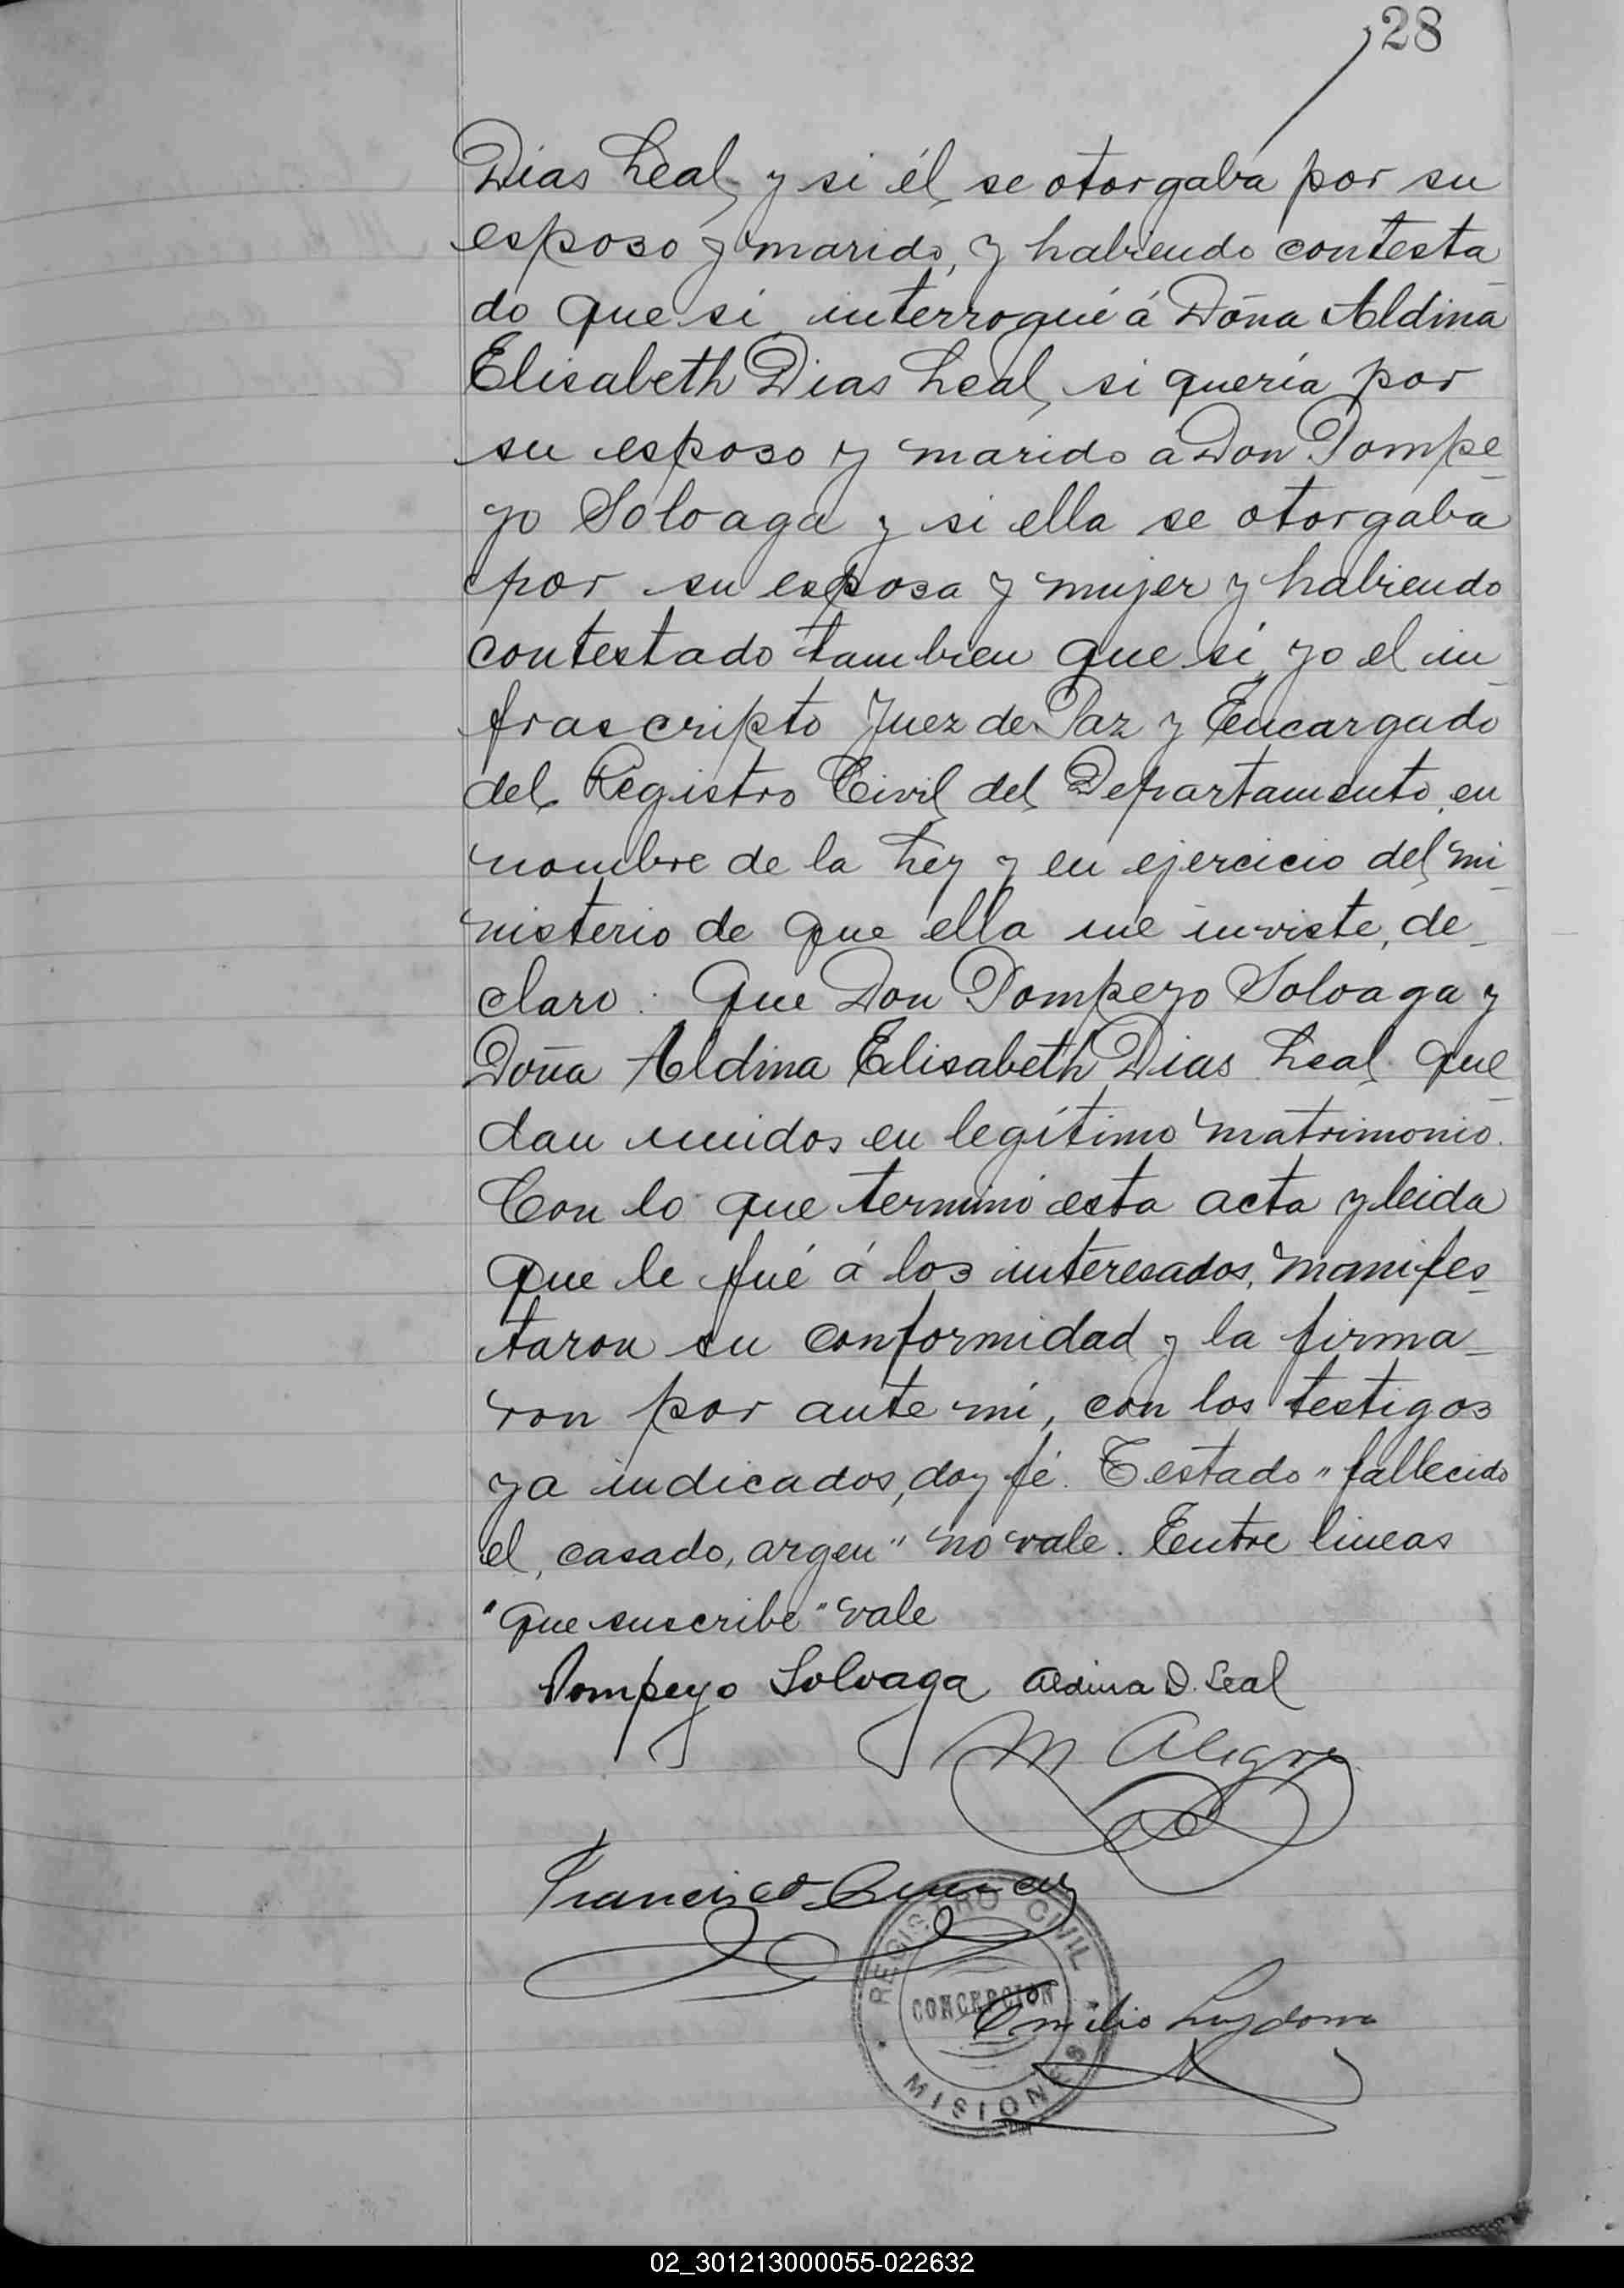 28
Dias Leal, y si él se otorgaba por su
esposo y marido, y habiendo contesta
do que si, interrogué á Doña Aldina
Elisabeth Dias Leal, si quería por
su esposo y marido a Don Pompe-
yo Soloaga y si ella se otorgaba
por su esposa y mujer y habiendo
contestado tambien que si, yo el in-
frascripto Juez de Paz y Encargado
del Registro Civil del Departamento, en
nombre de la Ley y en ejercicio del mi-
nisterio de que ella me inviste, de-
claro: Que Don Pompeyo Soloaga y
Doña Aldina Elisabeth Dias Leal que-
dan unidos en legítimo matrimonio.
Con lo que terminó esta acta y leida
que le fué á los interesados, manifes-
taron su conformidad y la firma-
ron por ante mí, con los testigos
ya indicados, doy fé. Testado "fallecido
el, casado, argen" no vale. Entre lineas
"que suscribe" vale
Pompeyo Soloaga Aldina D. Leal
M Alegre
Francisco
REGISTRO CIVIL
CONCEPCION
MISIONES
Emilio
02_301213000055-022632